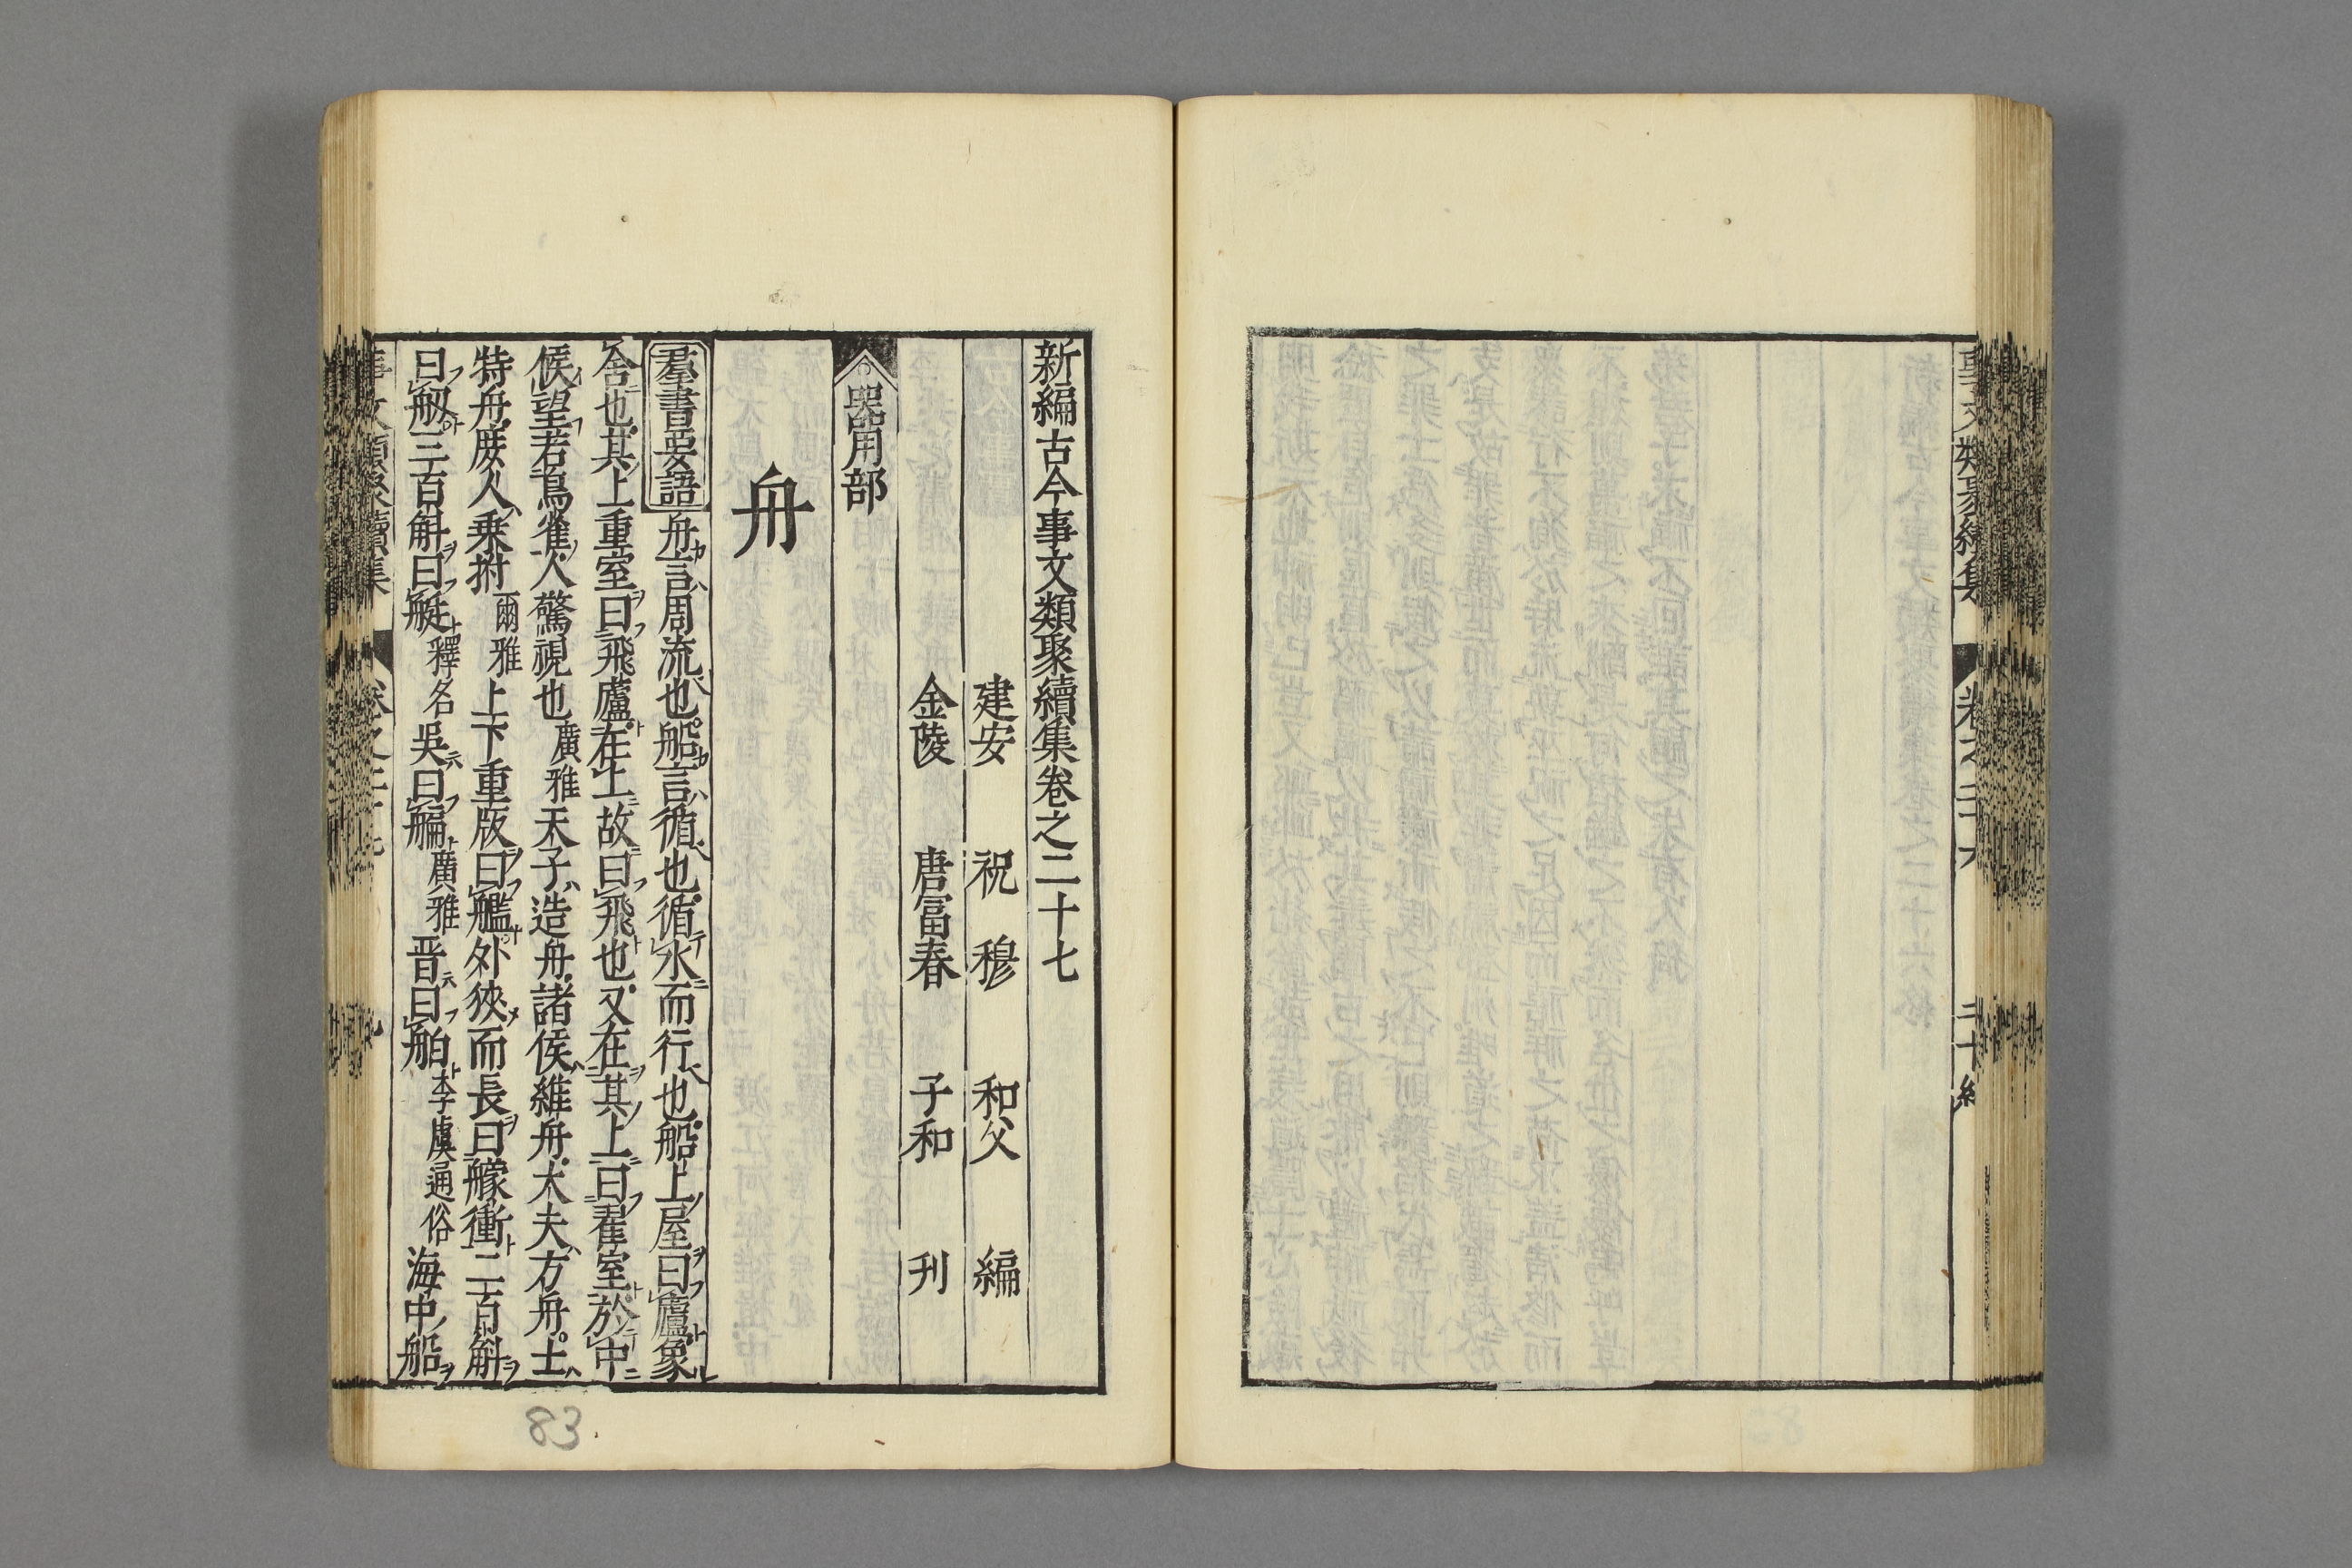 新編古今事文類聚續集卷之二十七
建安 祝穆 和父 編
金陵 唐富春 子和 刊
器用部
舟
羣書要語 舟言周流也船言循也循水而行也船上屋曰廬象
舎也其上重室曰飛廬在上故曰飛也又在其上曰雀室於中
候望若鳥雀人驚視也廣雅天子造舟諸侯維舟大夫方舟士
特舟庶人乗泭爾雅上下重版曰艦外狹而長曰艨衝二百斛
曰舠三百斛曰艇釋名吳曰艑廣雅晋曰舶李虔通俗海中船
83